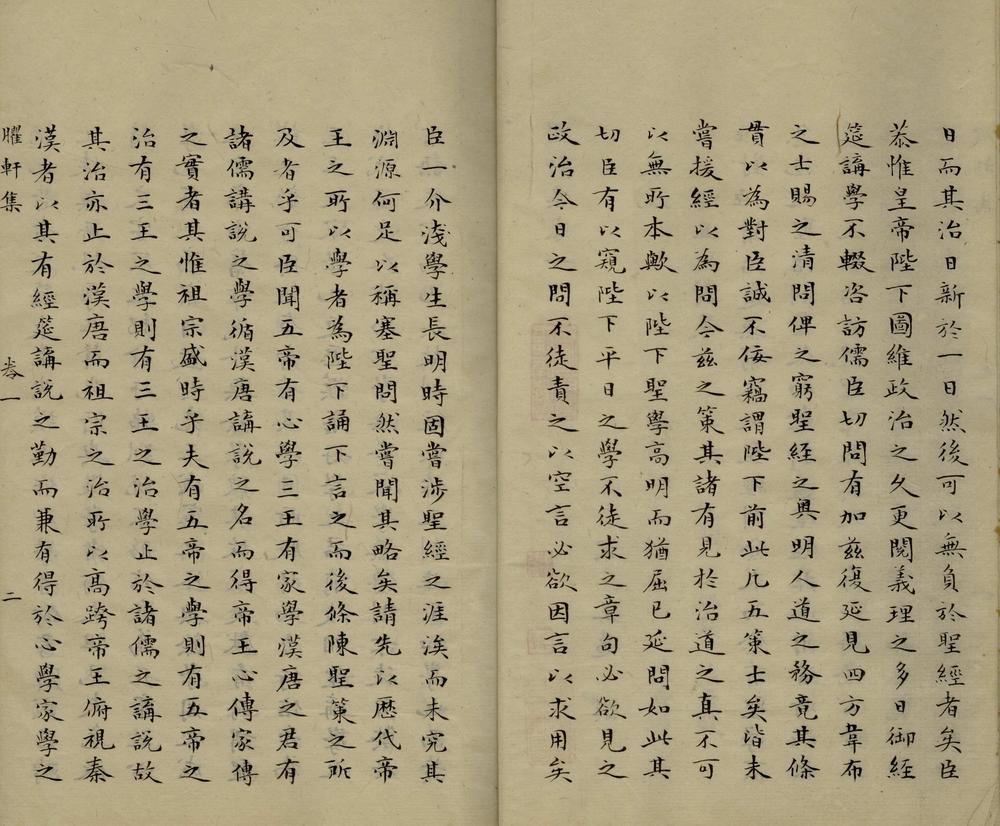 日而其治日新於一日然後可以無負於聖經者矣臣
恭惟皇帝陛下圖維政治之久更閱義理之多日御經
筵講學不輟咨訪儒臣切問有加茲復延見四方韋布
之士賜之清問俾之窮聖經之奥明人道之務竟其條
貫以為對臣誠不佞竊謂陛下前此凡五策士矣皆未
嘗援經以為問今茲之策其諸有見於治道之真不可
以無所本歟以陛下聖學高明而猶屈已延問如此其
切臣有以窺陛下平日之學不徒求之章句必欲見之
政治今日之問不徒責之以空言必欲因言以求用矣
臣一介淺學生長明時固嘗涉聖經之涯涘而未究其
淵源何足以稱塞聖問然嘗聞其略矣請先以歴代帝
王之所以學者為陛下誦下言之而後條陳聖策之所
及者乎可臣聞五帝有心學三王有家學漢唐之君有
諸儒講說之學循漢唐講說之名而得帝王心傳家傳
之實者其惟祖宗盛時乎夫有五帝之學則有五帝之
治有三王之學則有三王之治學止於諸儒之講說故
其治亦止於漢唐而祖宗之治所以高跨帝王俯視秦
漢者以其有經筵講說之勤而兼有得於心學家學之
臞軒集 卷一 二